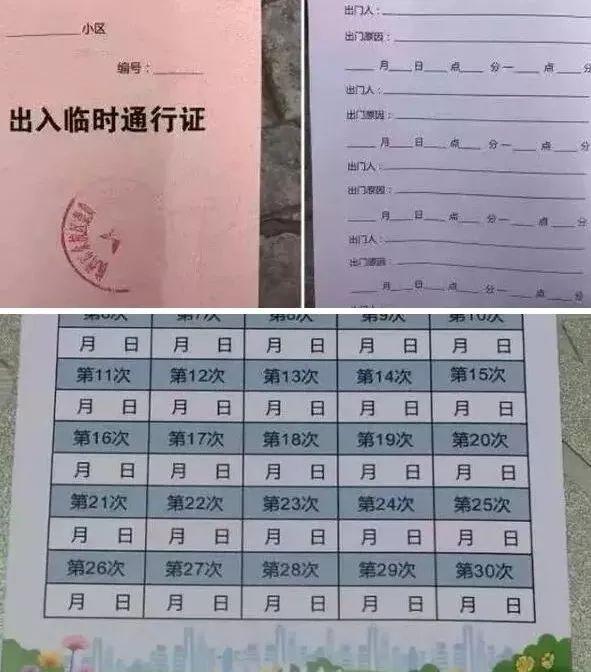 小区
编号：
出入临时通行证
出门人：
出门原因：
月 日 点 分一 点 分
出门人：
出门原因：
月 日 点 分一 点 分
出门人：
出门原因：
月 日 点 分一 点 分
出门人：
出门原因：
月 日 点 分一 点 分
第6次 第7次 第8次 第9次 第10次
月 日 月 日 月 日 月 日 月 日
第11次 第12次 第13次 第14次 第15次
月 日 月 日 月 日 月 日 月 日
第16次 第17次 第18次 第19次 第20次
月 日 月 日 月 日 月 日 月 日
第21次 第22次 第23次 第24次 第25次
月 日 月 日 月 日 月 日 月 日
第26次 第27次 第28次 第29次 第30次
月 日 月 日 月 日 月 日 月 日